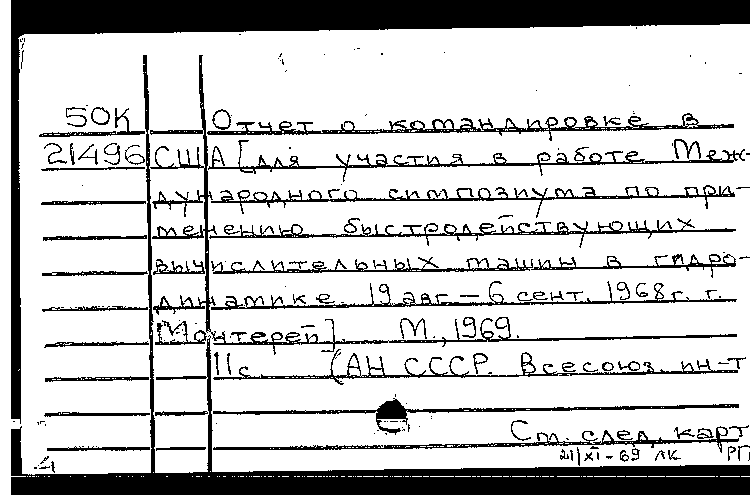 50К Отчет о командировке в
21496 США [для участия в работе Меж-
дународного симпозиума по при-
менению быстродействующих
вычислительных машин в гидро-
динамике. 19 авг. – 6 сент. 1968 г. г.
Монтерей]. М., 1969.
11с. (АН СССР. Всесоюз. ин-т
См. след. карт
21/XI-69 ЛК РП
4